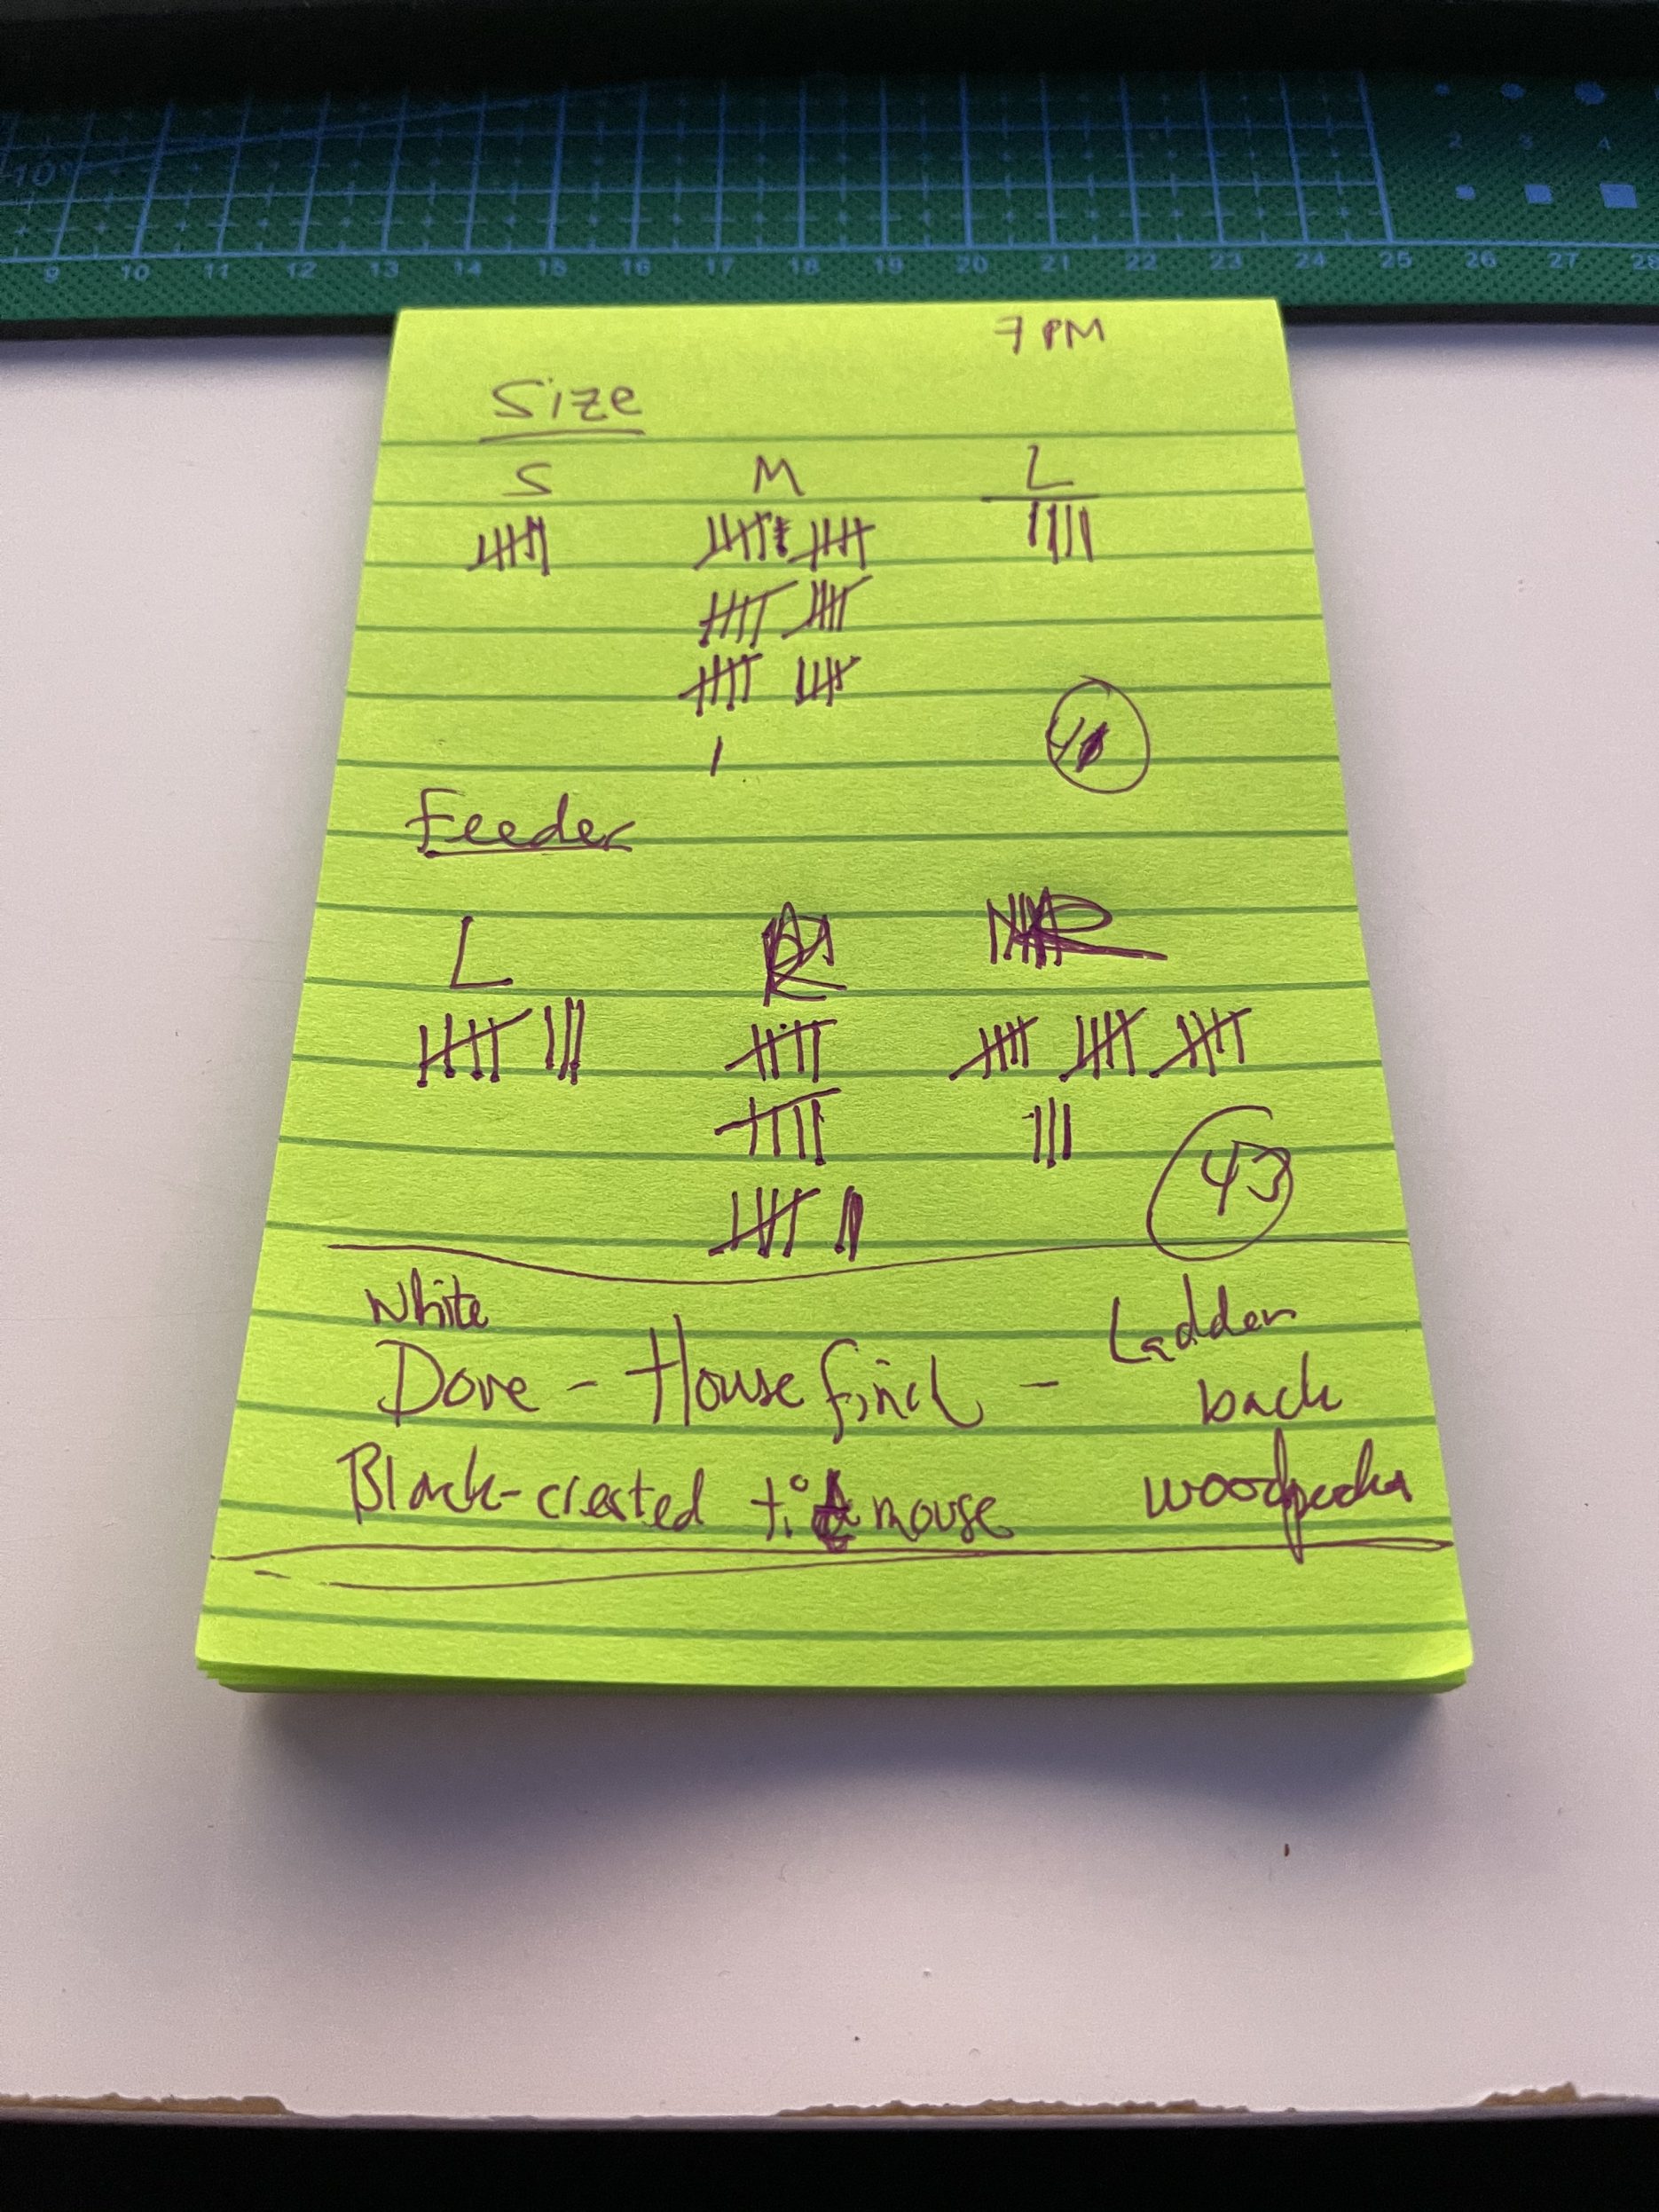 10°
2 3 4
9 10 11 12 13 14 15 16 17 18 19 20 21 22 23 24 25 26 27 28
7 PM
Size
S M L
Feeder
L R
43
White
Dove - House finch - Ladder
back
Black-crested titmouse woodpecker